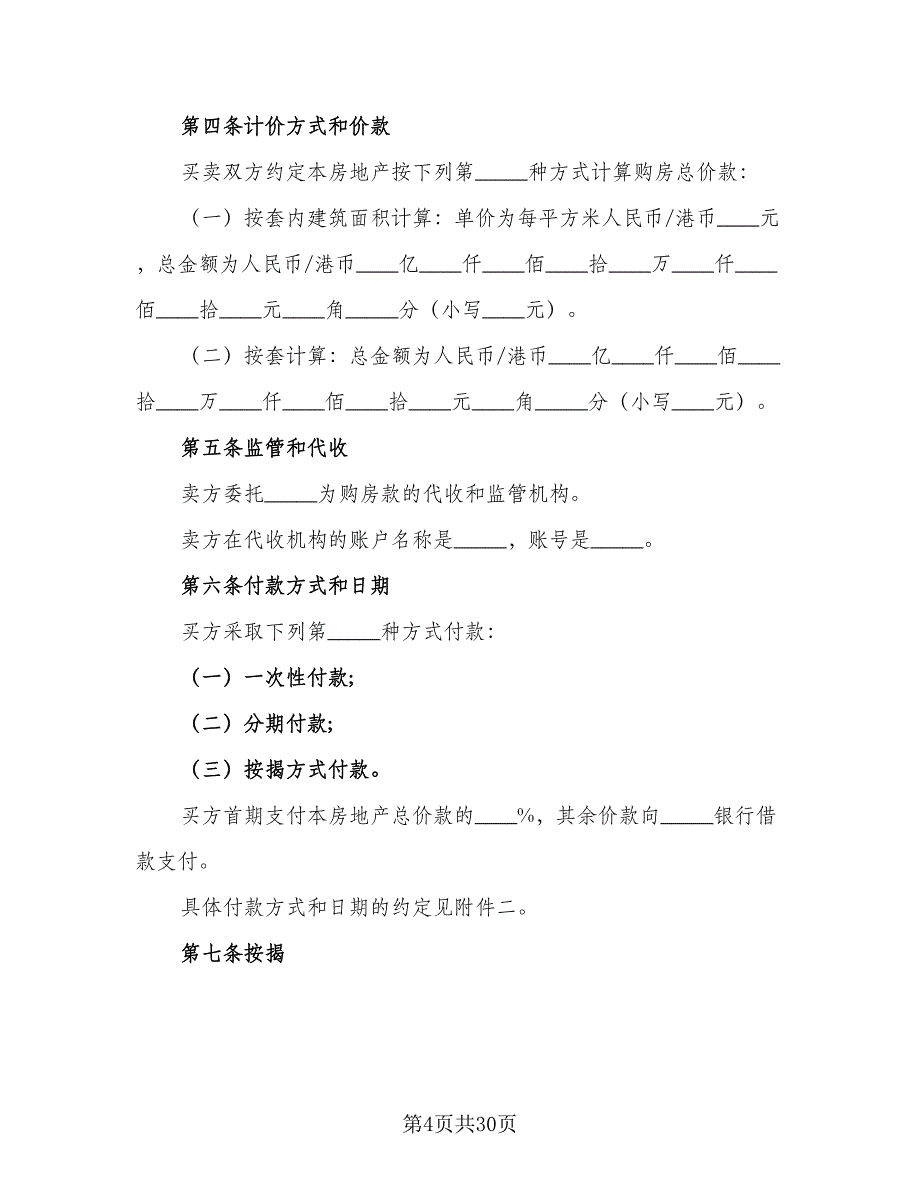 第四条计价方式和价款
买卖双方约定本房地产按下列第_____种方式计算购房总价款：
（一）按套内建筑面积计算：单价为每平方米人民币/港币____元
，总金额为人民币/港币____亿____仟____佰____拾____万____仟____
佰____拾____元____角_____分（小写____元）。
（二）按套计算：总金额为人民币/港币____亿____仟____佰____
拾____万____仟____佰____拾____元____角_____分（小写____元）。
第五条监管和代收
卖方委托_____为购房款的代收和监管机构。
卖方在代收机构的账户名称是_____，账号是_____。
第六条付款方式和日期
买方采取下列第_____种方式付款：
（一）一次性付款;
（二）分期付款;
（三）按揭方式付款。
买方首期支付本房地产总价款的____%，其余价款向_____银行借
款支付。
具体付款方式和日期的约定见附件二。
第七条按揭
第4页共30页